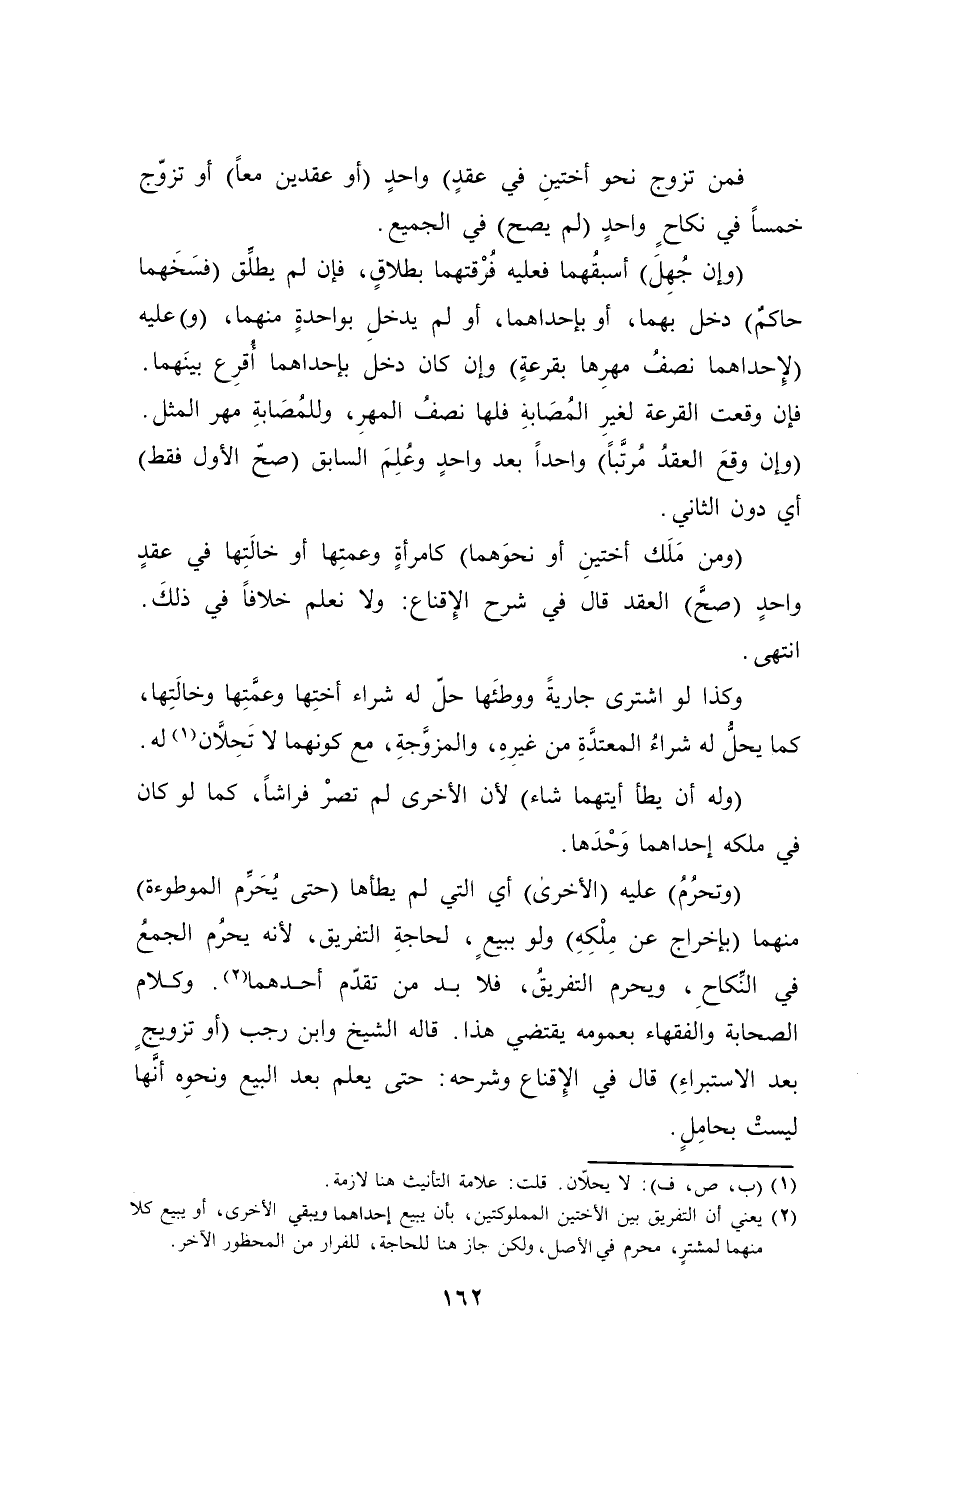 فمن تزوج نحو أختينِ في عقدٍ) واحدٍ (أو عقدين معاً) أو تزوّج
خمساً في نكاحٍ واحدٍ (لم يصح) في الجميع.
(وإن جُهِلَ) أسبقُهما فعليه فُرْقتهما بطلاقٍ، فإن لم يطلِّق (فسَخَهما
حاكمٌ) دخل بهما، أو بإحداهما، أو لم يدخلِ بواحدةٍ منهما، (و) عليه
(لإِحداهما نصفُ مهرِها بقرعةٍ) وإن كان دخل بإحداهما أُقرِع بينَهما.
فإن وقعت القرعة لغيرِ المُصَابةِ فلها نصفُ المهرِ، وللمُصَابةِ مهر المثل.
(وإن وقعَ العقدُ مُرتَّباً) واحداً بعد واحدٍ وعُلِمَ السابق (صحّ الأول فقط)
أي دون الثاني.
(ومن مَلَك أختينِ أو نحوَهما) كامرأةٍ وعمتِها أو خالَتِها في عقدٍ
واحدٍ (صحَّ) العقد قال في شرح الإِقناع: ولا نعلم خلافاً في ذلكَ.
انتهى.
وكذا لو اشترى جاريةً ووطئَها حلّ له شراء أختِها وعمَّتِها وخالَتِها،
كما يحلُّ له شراءُ المعتدَّةِ من غيرِهِ، والمزوَّجةِ، مع كونهما لا تَحِلاَّن(١) له.
(وله أن يطأ أيتهما شاء) لأن الأخرى لم تصرْ فراشاً، كما لو كان
في ملكه إحداهما وَحْدَها.
(وتحرُمُ) عليه (الأخرىٰ) أي التي لم يطأها (حتى يُحَرِّم الموطوءة)
منهما (بإخراج عن مِلْكِهِ) ولو ببيعٍ، لحاجةِ التفريق، لأنه يحرُم الجمعُ
في النِّكاحِ، ويحرم التفريقُ، فلا بد من تقدّم أحدهما(٢). وكلام
الصحابة والفقهاء بعمومه يقتضي هذا. قاله الشيخ وابن رجب (أو تزويجٍ
بعد الاستبراءِ) قال في الإِقناع وشرحه: حتى يعلم بعد البيع ونحوِه أنَّها
ليستْ بحامِلٍ.
(١) (ب، ص، ف): لا يحلّان. قلت: علامة التأنيث هنا لازمة.
(٢) يعني أن التفريق بين الأختين المملوكتين، بأن يبيع إحداهما ويبقي الأخرى، أو يبيع كلا
منهما لمشترٍ، محرم في الأصل، ولكن جاز هنا للحاجة، للفرار من المحظور الآخر.
١٦٢